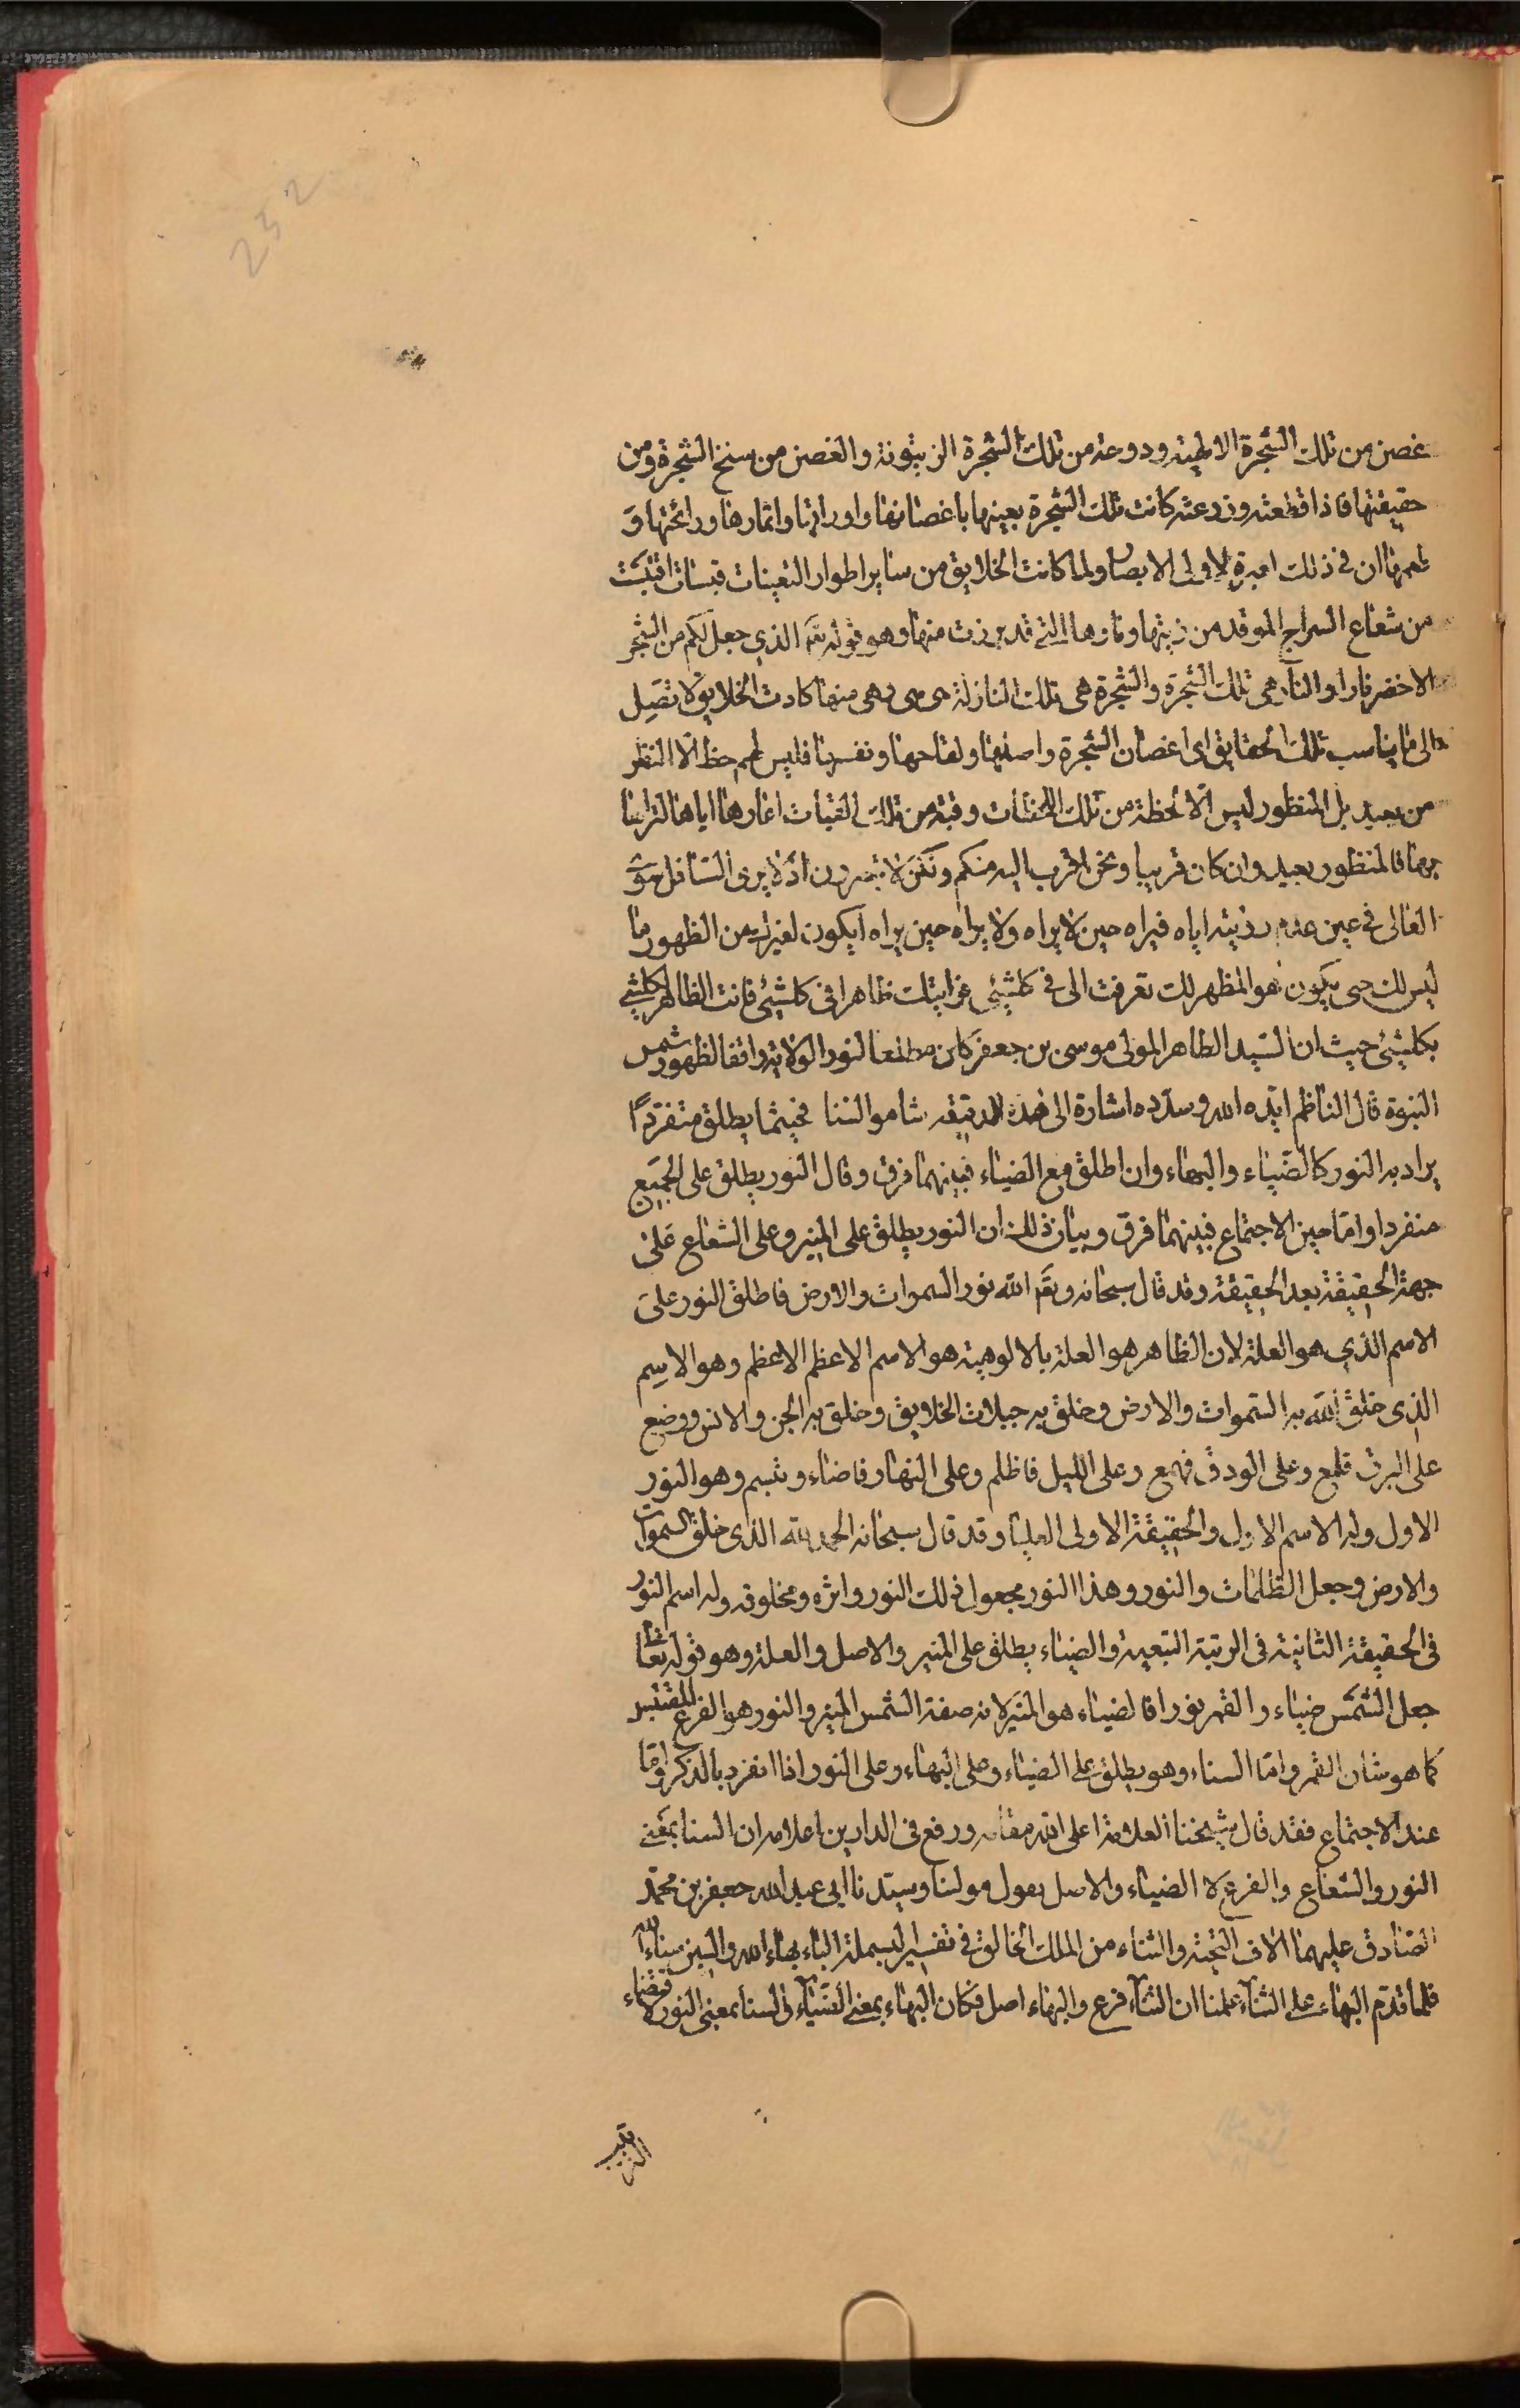 232
غصن من تلك الشجرة الالهية ودوحة من تلك الشجرة الزيتونة والغصن من سنخ الشجرة ومن
حقيقتها فاذا قطعته وزرعته كانت تلك الشجرة بعينها باغصانها واوراقها واثمارها ورائحتها و
طعمها ان فى ذلك لعبرة لاولى الابصار ولما كانت الخلايق من ساير اطوار التعينات قبسات اقتبست
من شعاع السراج الموقد من زيتها ونارها التى قد برزت منها وهو قوله تعَ الذى جعل لكم من الشجر
الاخضر نارا والنار هى تلك الشجرة والشجرة هى تلك النار لا هى هى وهى منها كادت الخلايق لا تصل
الى ما يناسب تلك الحقايق اى اغصان الشجرة واصلها ولقاحها ونفسها فليس لهم حظ الّا النظر
من بعيد بل المنظور ليس الّا لحظة من تلك اللحظات وقبة من تلك القبات اعارها اياها لتراها
بها فالمنظور بعيد وان كان قريبا ونحن اقرب اليه منكم ولكن لا تبصرون اذ لا يرى السافل مق
العالى فى عين عدم رؤيته اياه فيراه حين لا يراه ولا يراه حين يراه ايكون لغيرك من الظهور ما
ليس لك حتى يكون هو المظهر لك تعرفت الى فى كلشيئ فرايتك ظاهرا فى كلشيئ فانت الظاهر لكلشئ
بكلشيئ حيث ان السيد الطاهر المولى موسى بن جعفر كان مطلعا لنور الولاية واقفا لظهور شمس
النبوة قال الناظم ايّده الله وسدّده اشارة الى هذه الدقيقه شاموا السنا فحيثما يطلق متفرّدًا
يراد به النور كالضياء والبهاء وان اطلق مع الضياء فبينهما فرق وقال النور يطلق على الجميع
منفردا وامّا حين الاجتماع فبينهما فرق وبيان ذلك ان النور يطلق على المنير وعلى الشعاع على
جهة الحقيقة بعد الحقيقة وقد قال سبحانه وتعَ الله نور السموات والارض فاطلق النور على
الاسم الذى هو العلة لان الظاهر هو العلة بالالوهية هو الاسم الاعظم الاعظم وهو الاسم
الذى خلق الله به السموات والارض وخلق به جبلات الخلايق وخلق به الجن والانس ووضع
على البرق فلمع وعلى الودق فهمع وعلى الليل فاظلم وعلى النهار فاضاء وتبسم وهو النور
الاول وله الاسم الاول والحقيقة الاولى العليا وقد قال سبحانه الحمد لله الذى خلق السموات
والارض وجعل الظلمات والنور وهذا النور مجعول ذلك النور واثره ومخلوقه وله اسم النور
فى الحقيقة الثانية فى الرتبة التبعية والضياء يطلق على المنير والاصل والعلة وهو قوله تعالى
جعل الشمس ضياء والقمر نورا فالضياء هو المنير لانه صفة الشمس المنير والنور هو الفرع المقتبس
كما هو شان القمر وامّا السناء وهو يطلق على الضياء وعلى البهاء وعلى النور اذا انفرد بالذكر وامّا
عند الاجتماع فقد قال شيخنا العلامة اعلى الله مقامه ورفع فى الدارين اعلامه ان السنا بمعنى
النور والشعاع والفرع لا الضياء والاصل بقول مولنا وسيدنا ابى عبد الله جعفر بن محمّد
الصادق عليهما الاف التحية والثناء من الملك الخالق فى تفسير البسملة الباء بهاء الله والسين سناء الله
فلما قدّم البهاء على السنآء علمنا ان السنآء فرع والبهاء اصل فكان البهاء بمعنى الضيآء والسنا بمعنى النور لاقتضاء
الترتيب